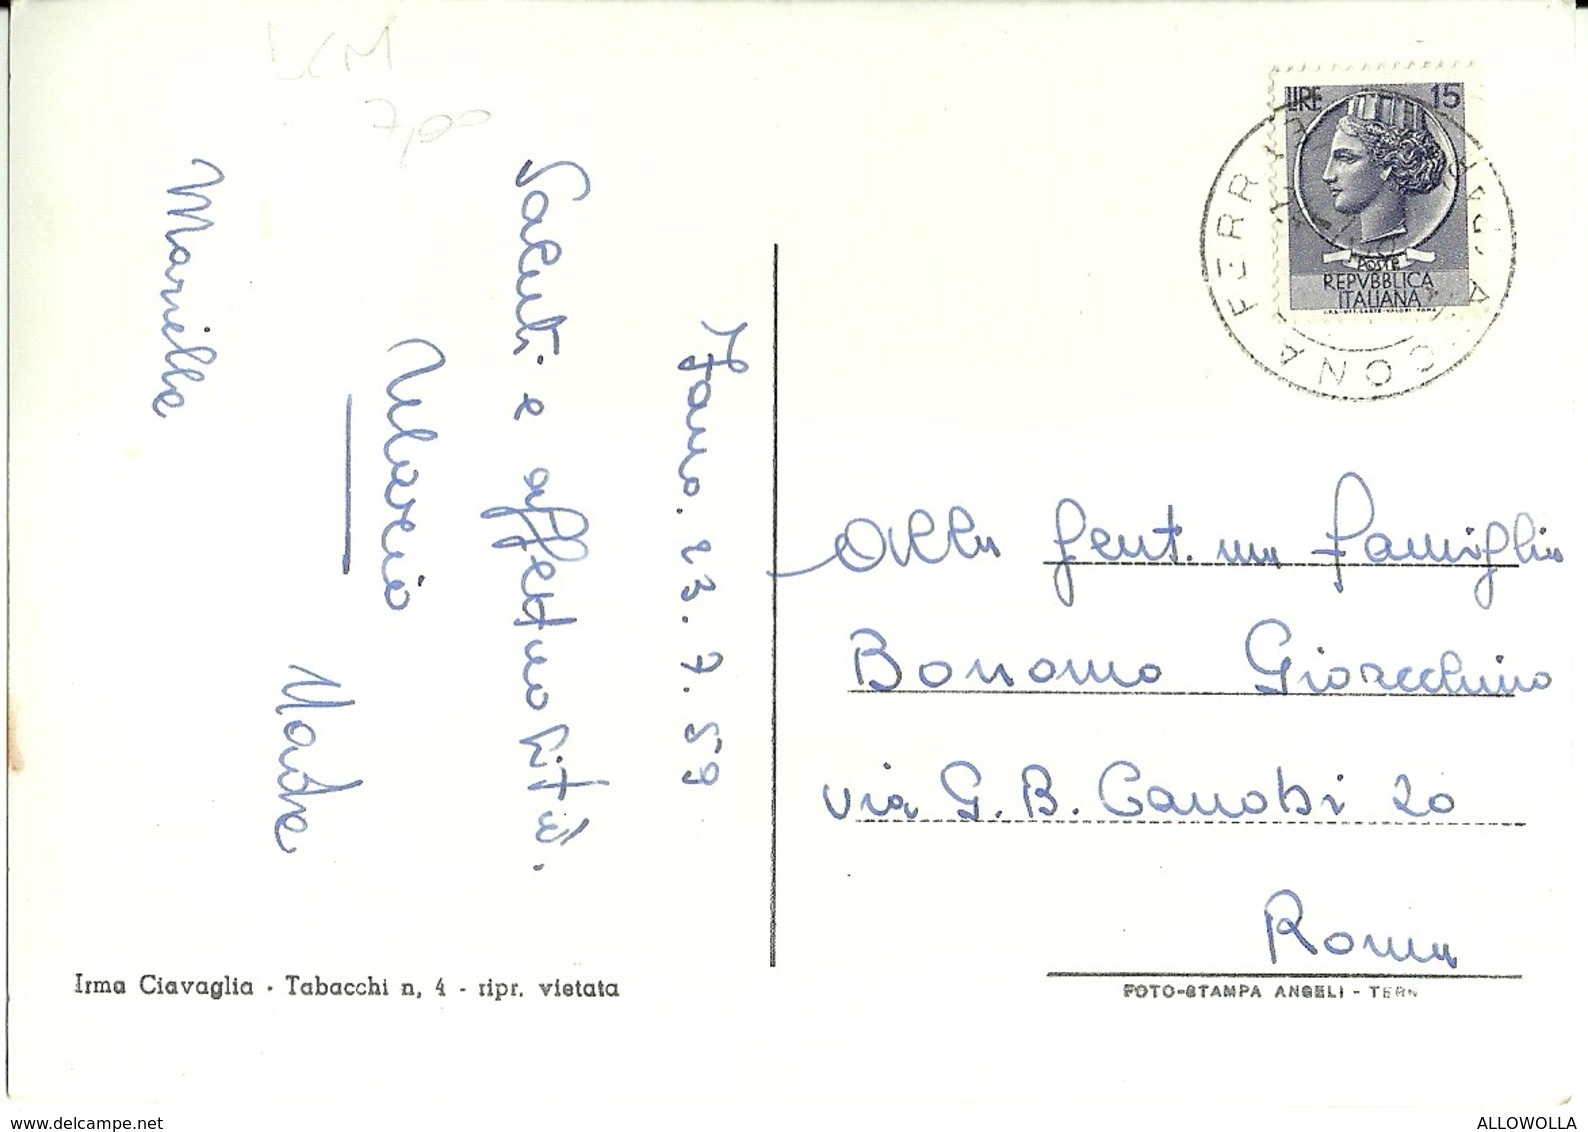 LIRE 15
POSTE
REPVBBLICA
ITALIANA
FERR
Fano. 23. 7. 59
Saluti e affettuosità.
Marcio
Madre
Mariella
Alla gent.ma famiglia
Bonomo Gioacchino
via G. B. Canobi 20
Roma
Irma Ciavaglia - Tabacchi n, 4 - ripr. vietata
FOTO-STAMPA ANGELI - TERN
www.delcampe.net
ALLOWOLLA